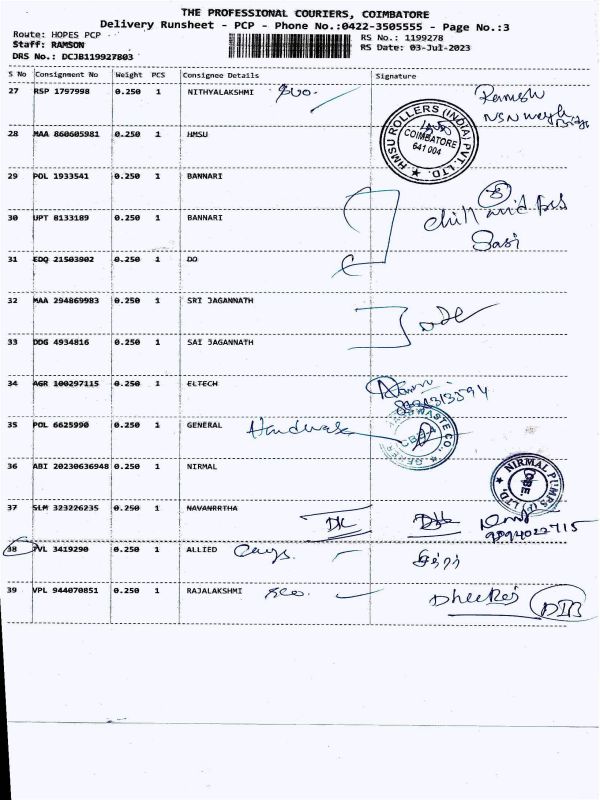 THE PROFESSIONAL COURIERS, COIMBATORE
Delivery Runsheet - PCP - Phone No.:0422-3505555 - Page No.:3
Route: HOPES PCP RS No.: 1199278
Staff: RAMSON RS Date: 03-Jul-2023
DRS No.: DCJB119927803
S No Consignment No Weight PCS Consignee Details Signature
27 RSP 1797998 0.250 1 NITHYALAKSHMI
Ramesh
28 MAA 860605981 0.250 1 HMSU
HMSU ROLLERS (INDIA) PVT. LTD.
COIMBATORE
641 004
29 POL 1933541 0.250 1 BANNARI
30 UPT 8133189 0.250 1 BANNARI
Sasi
31 EDQ 21503902 0.250 1 DO
32 MAA 294869983 0.250 1 SRI JAGANNATH
33 DDG 4934816 0.250 1 SAI JAGANNATH
34 AGR 100297115 0.250 1 ELTECH
35 POL 6625990 0.250 1 GENERAL
36 ABI 20230636948 0.250 1 NIRMAL
NIRMAL PUMPS
CBE.
37 SLM 323226235 0.250 1 NAVANRRTHA
38 PVL 3419290 0.250 1 ALLIED
39 VPL 944070851 0.250 1 RAJALAKSHMI